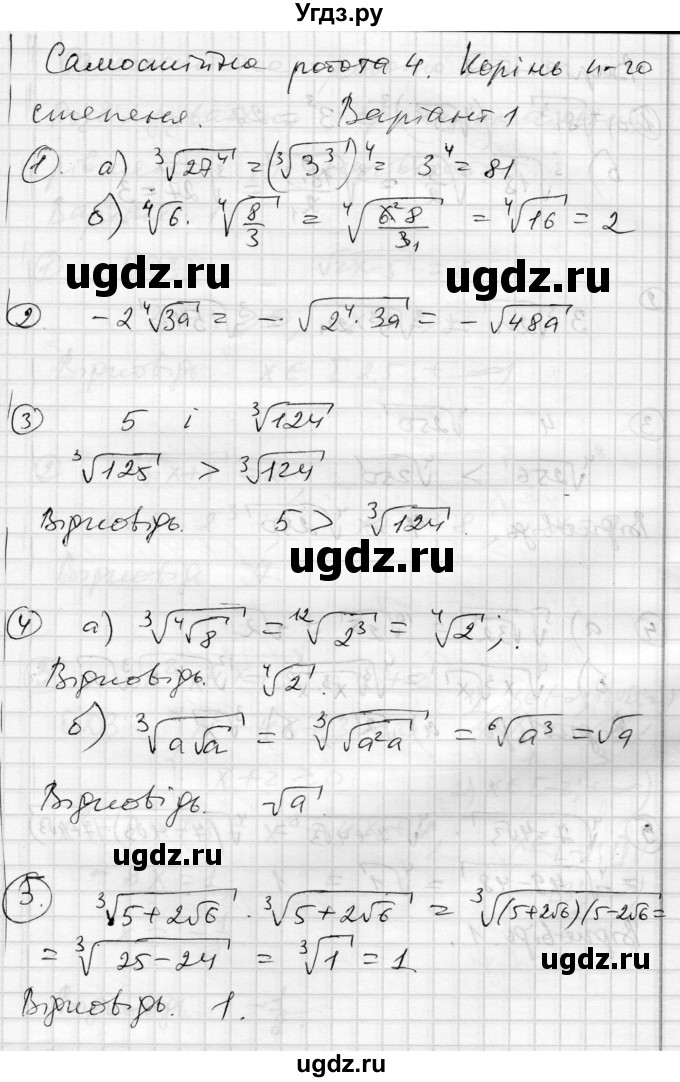 Угдз.ру
Самостійна робота 4. Корінь n-го
степеня. Варіант 1
1. а) ∛(27⁴) = (∛(3³))⁴ = 3⁴ = 81
б) ⁴√6 · ⁴√(8/3) = ⁴√(6² 8/3₁) = ⁴√16 = 2
ugdz.ru ugdz.ru
2 -2 ⁴√(3a) = -√(2⁴ · 3a) = -√(48a)
3 5 і ∛124
∛125 > ∛124
Відповідь. 5 > ∛124.
ugdz.ru
4 а) ∛(⁴√8) = ¹²√(2³) = ⁴√2;.
Відповідь. ⁴√2.
б) ∛(a√a) = ∛(√(a²a)) = ⁶√(a³) = √a
Відповідь. √a.
ugdz.ru
5. ∛(5+2√6) · ∛(5+2√6) = ∛((5+2√6)(5-2√6) =
= ∛(25-24) = ∛1 = 1
ugdz.ru
Відповідь. 1.
ugdz.ru